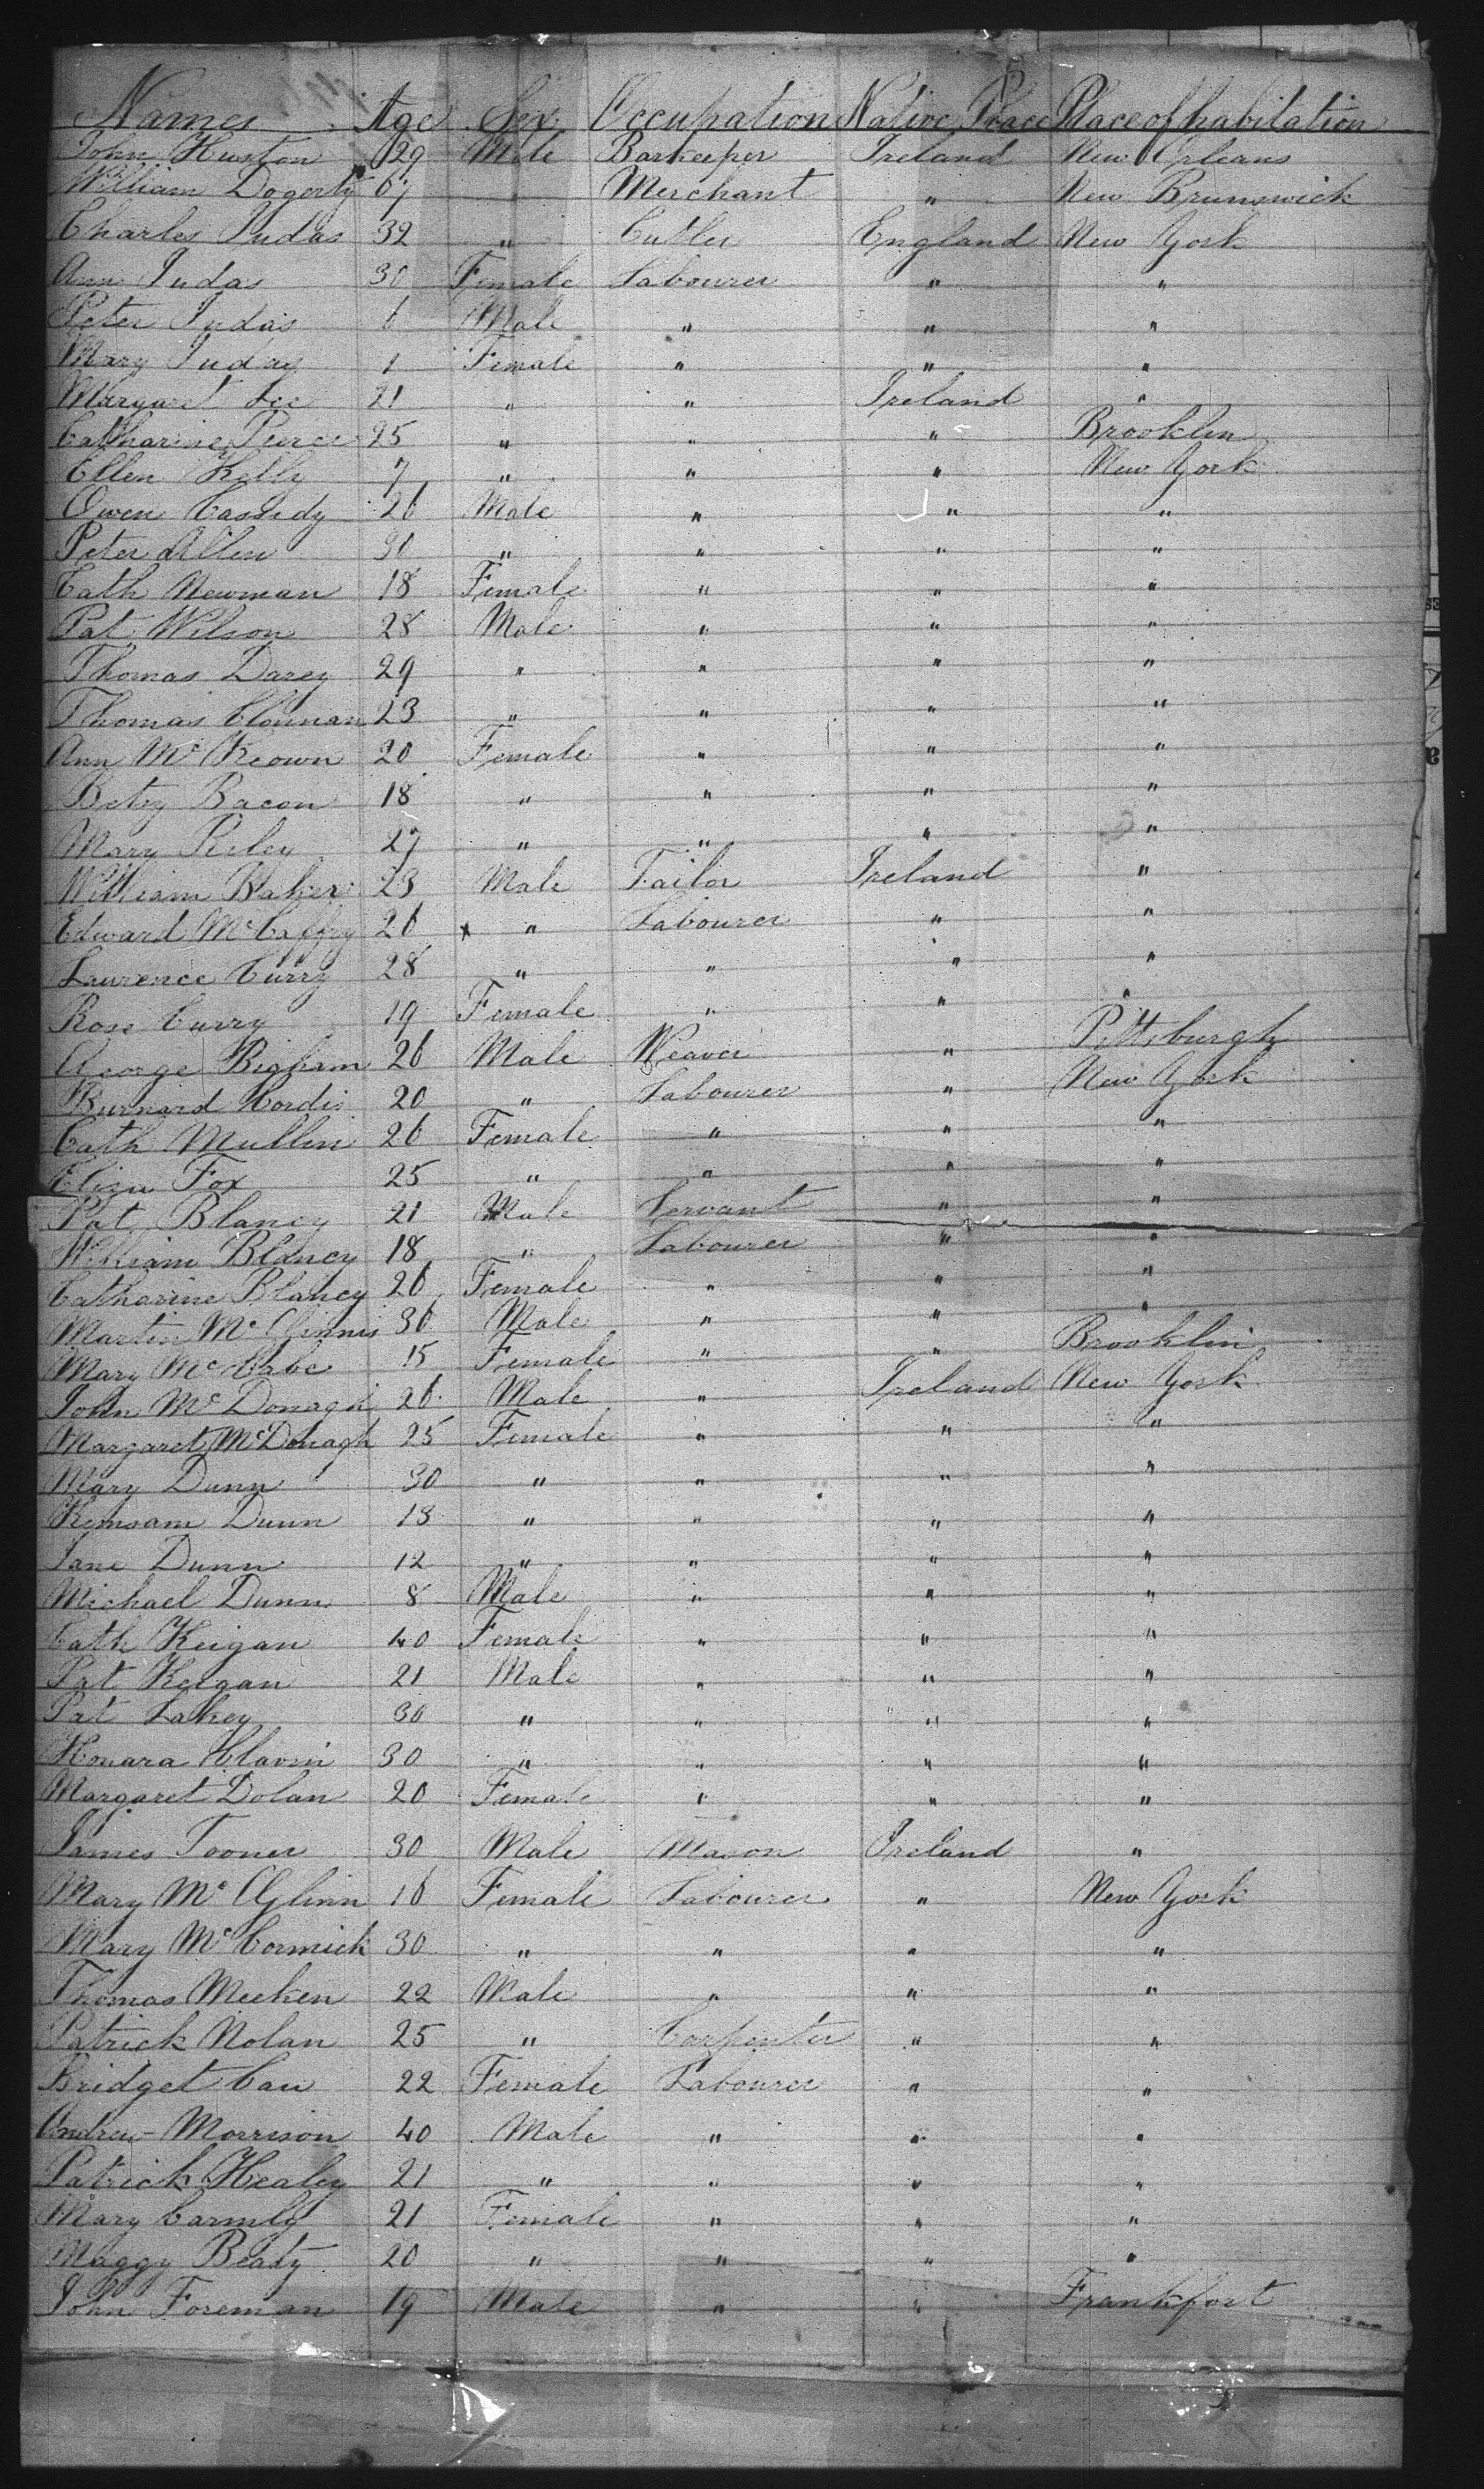 Names Age Sex Occupation Native Place Place of habitation
John Huston 29 Male Barkeeper Ireland New Orleans
William Dogerty 67 " Merchant " New Brunswick
Charles Judas 32 " Cutler England New York
Ann Judas 30 Female Labourer " "
Peter Judas 6 Male " " "
Mary Judas 1 Female " " "
Margaret Lee 21 " " Ireland "
Catharine Pierce 25 " " " Brooklin
Ellen Kelly 7 " " " New York
Owen Cassidy 26 Male " " "
Peter Allen 36 " " " "
Cath Newman 18 Female " " "
Pat Wilson 28 Male " " "
Thomas Darcy 29 " " " "
Thomas Clonnan 23 " " " "
Ann Mc Keown 20 Female " " "
Betsy Bacon 18 " " " "
Mary Reiley 27 " " " "
William Baker 23 Male Tailor Ireland "
Edward McCaffry 26 x " Labourer " "
Laurence Curry 28 " " " "
Rose Curry 19 Female " " "
George Bigham 26 Male Weaver " Pittsburgh
Burnard Cordis 20 " Labourer " New York
Cath Mullin 26 Female " " "
Eliza Fox 25 " " " "
Pat Blancy 21 Male Servant " "
William Blancy 18 " Labourer " "
Catharine Blancy 26 Female " " "
Martin Mc Ginnis 36 Male " " "
Mary McCabe 15 Female " " Brooklin
John McDonagh 26 Male " Ireland New York
Margaret McDonagh 25 Female " " "
Mary Dunn 30 " " " "
Dunn 13 " " " "
Jane Dunn 12 " " " "
Michael Dunn 8 Male " " "
Cath Keigan 40 Female " " "
Pat Keigan 21 Male " " "
Pat Lakey 30 " " " "
Honara Clavin 30 " " " "
Margaret Dolan 20 Female " " "
James Tooner 30 Male Mason Ireland "
Mary Mc Glinn 16 Female Labourer " New York
Mary McCormick 30 " " " "
Thomas Meeken 22 Male " " "
Patrick Nolan 25 " Carpenter " "
Bridget Cau 22 Female Labourer " "
Andrew Morrison 40 Male " " "
Patrick Healey 21 " " " "
Mary Carmly 21 Female " " "
Maggy Beaty 20 " " " "
John Foreman 19 Male " " Frankfort